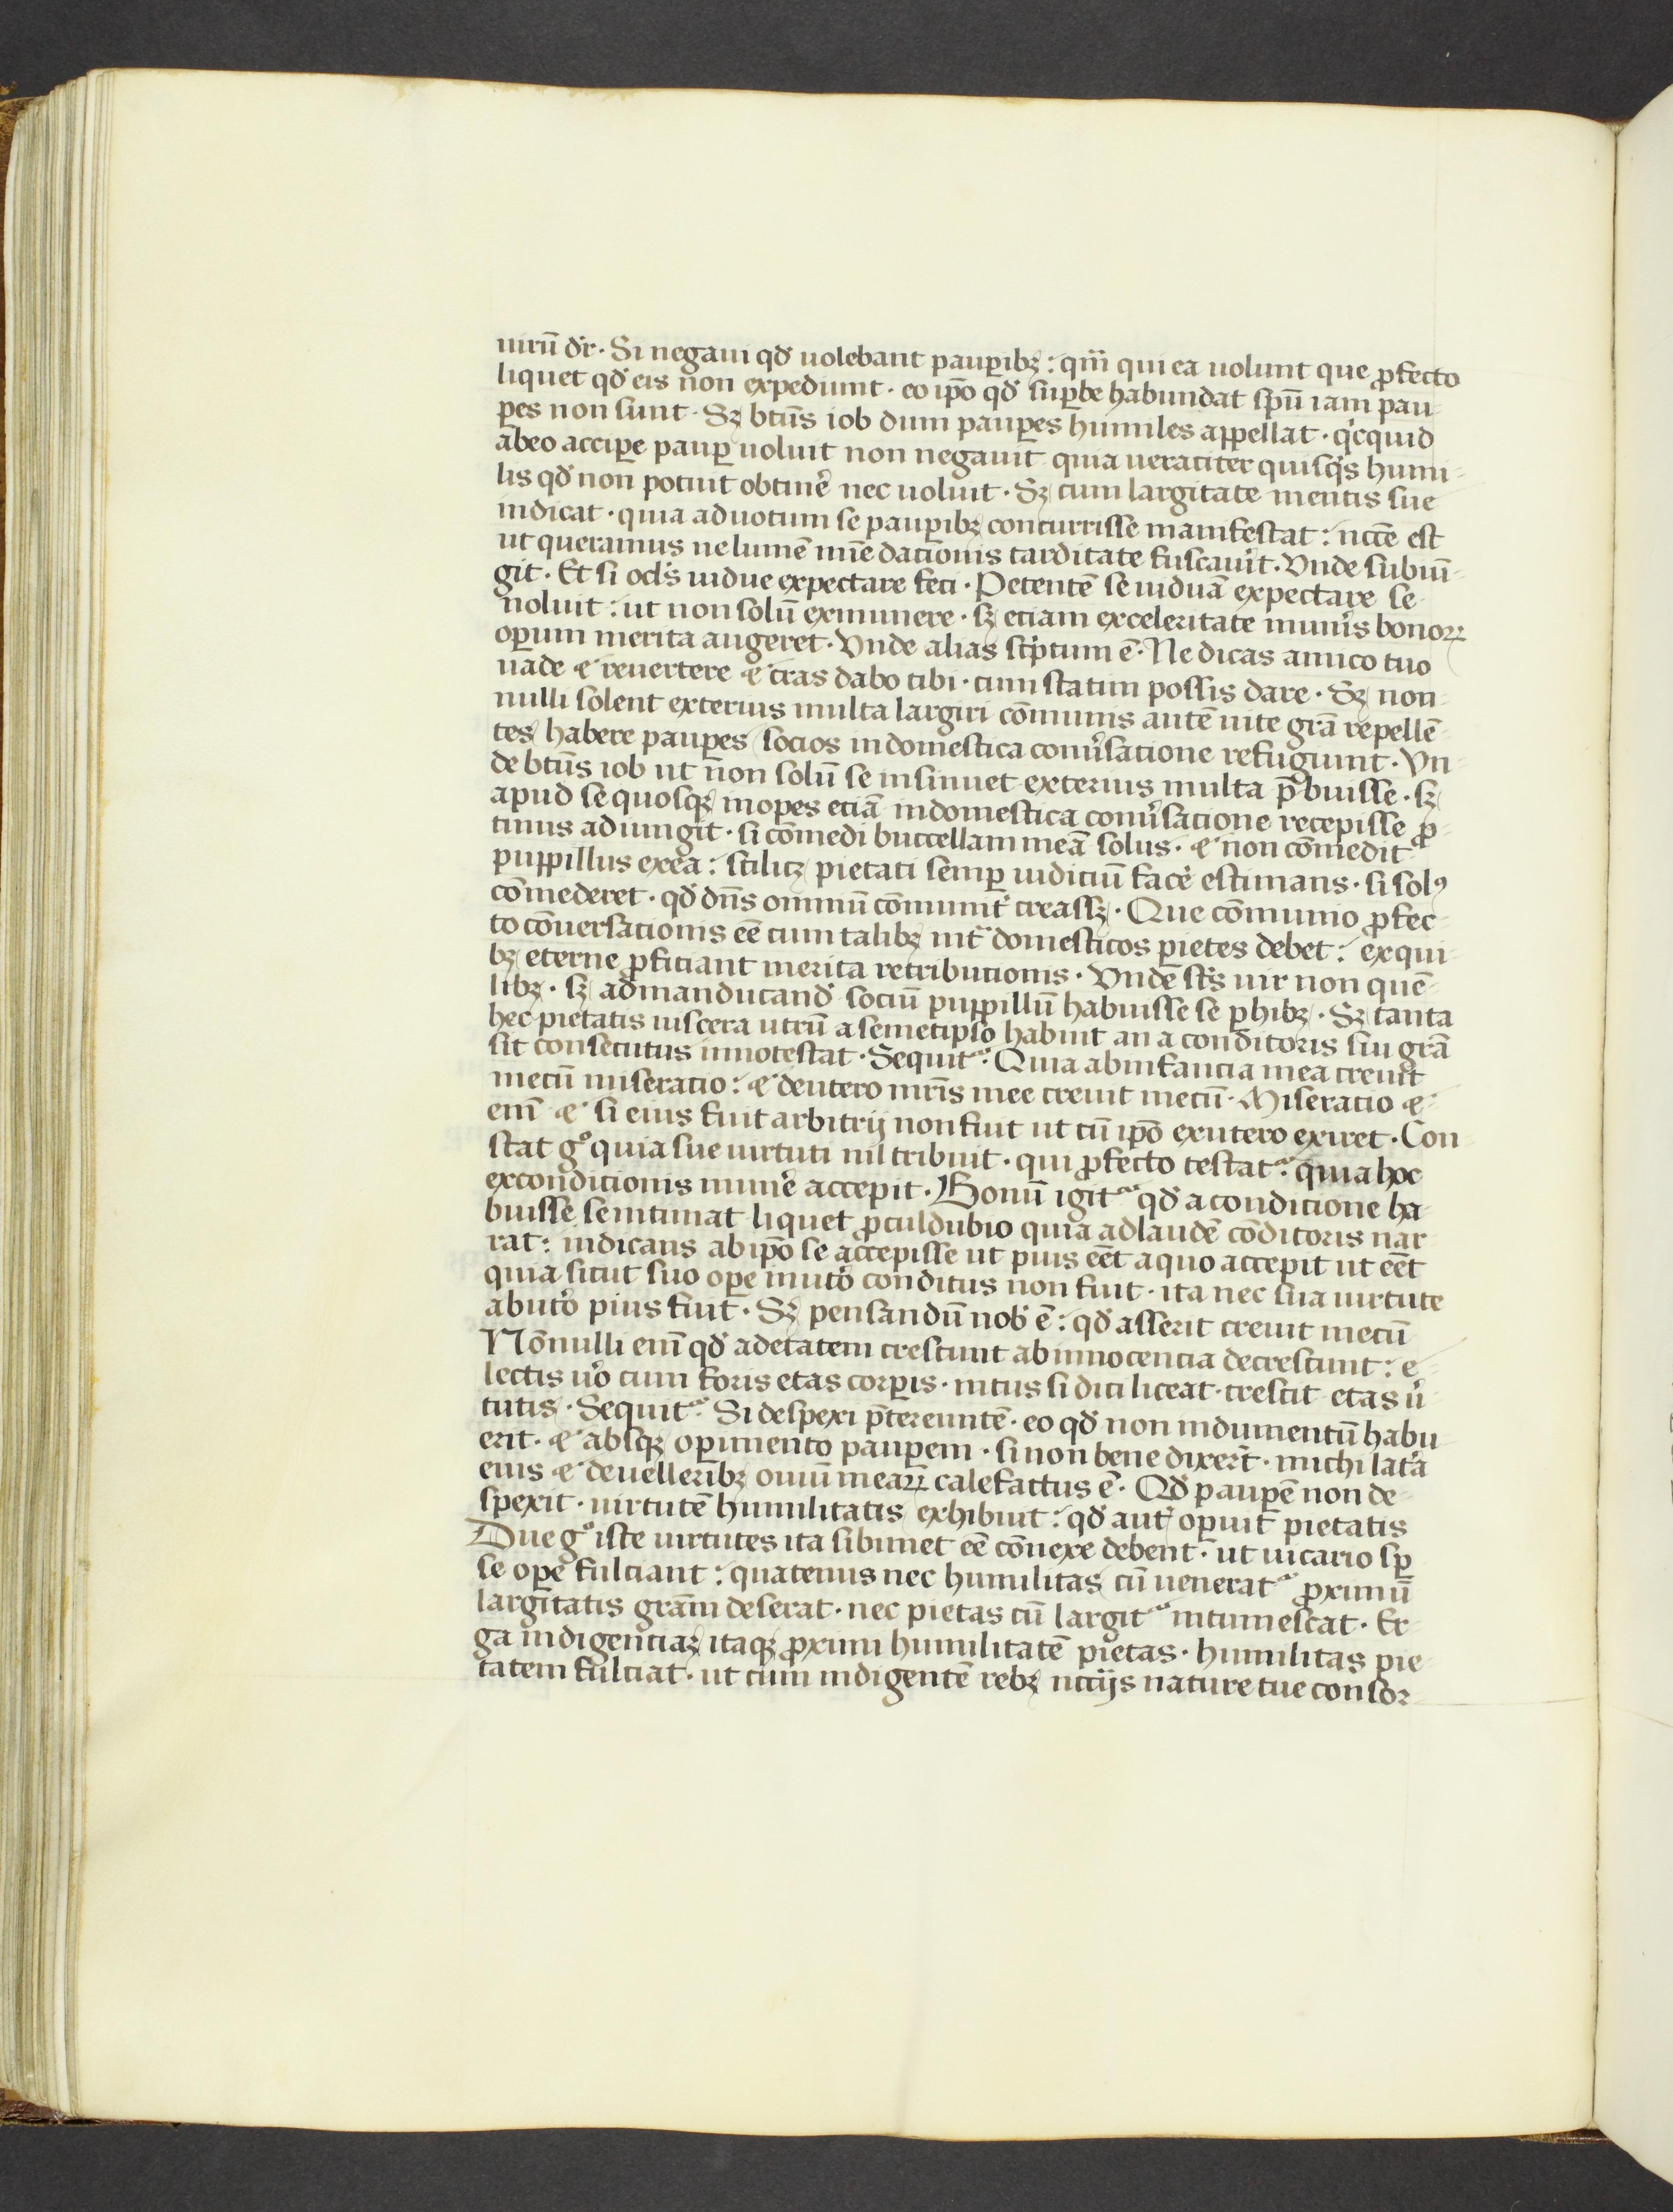 mirū dr̄. Si negaui qđ uolebant paupibꝫ: qm̄ qui ea uolunt que ꝓfecto
liquet qđ eis non expediunt. eo ip̄o qđ suꝑbe habundat sp̄u iam pau-
peres non sunt. Sꝫ bt̄us iob dum pauꝑes humiles appellat. qͥcquid
abeo acciꝑe pauꝑ uoluit non negauit quia ueraciter quisqͥs humi-
lis qđ non potuit obtinẽ nec uoluit. Sꝫ cum largitate mentis sue
indicat. quia aduotum se pauꝑibꝫ concurrisse manifestat: ncc̄e est
ut queramus ne lumē mn̄e dacionis tarditate fuscauit̕. Vnde subiū-
git. Et si oclͦs uidue expectare feci. Petentē se uiduā expectare se
noluit: ut non solū exmunere. sꝫ etiam exceleritate munẽis bonoꝝ
oꝑum merita augeret. Vnde alias scͥptum ē. Ne dicas amico tuo
uade ⁊ reuertere ⁊ cras dabo tibi. cum statim possis dare. Sꝫ non-
nulli solent exterius multa largiri cōmunis autē uite grā repellē-
tes habere pauꝑes socios indomestica conuẽsacione refugiunt. Vn-
de bt̄us iob ut non solū se insinuet exterius multa p̄buisse. sꝫ
apud se quosqꝫ inopes etiā indomestica conuẽsacione recepisse ꝓ-
tinus adiungit. si cōmedi buccellam meā solus. ⁊ non cōmedit
puppillus exea: scilicꝫ pietati semꝑ iudiciū facẽ estimans. si solꝰ
cōmederet. qđ dn̄s omniū cōmunit̕ creassꝫ. Que cōmunio ꝓfec-
to cōuersacionis eē cum talibꝫ int̕ domesticos pietes debet: exqui-
bꝫ eterne ꝓficiant merita retribucionis. Vnde scͣs uir non quē-
libꝫ. sꝫ admanducand̕ sociū puppillū habuisse se ꝑhibꝫ. Sꝫ tanta
hec pietatis uiscera utrū a semetipso habuit an a conditoris sui grā
sit consecutus innotescat. Sequit᷑. Quia abinfancia mea creuit
mecū miseratio: ⁊ deutero mr̄is mee creuit mecū. Miseracio ⁊-
enī ⁊ si eius fuit arbitrij non fuit ut cū ip̄o exutero exiret. Con-
stat gͦ quia sue uirtuti nil tribuit. qui ꝓfecto testat᷑: quia hoc
exconditionis munẽe accepit. Bonū igit᷑ qđ a condicione ha-
buisse se intimat liquet ꝓculdubio quia adlaudē cōditoris nar-
rat: indicans ab ip̄o se accepisse ut pius eēt aquo accepit ut eēt
quia sicut suo oꝑe inutẽo conditus non fuit. ita nec sua uirtute
abutẽo pius fuit. Sꝫ pensandū nob̕ ē: qđ asserit creuit mecū
Nōnulli enī qđ adetatem crescunt ab innocencia decrescunt: e-
lectis ũo cum foris etas corꝑis. intus si dici liceat. crescit etas ũ-
tutis. Sequit᷑. Si despexi p̄tereuntē. eo qđ non indumentū habu-
erit. ⁊ absqꝫ operimento pauꝑem. si non bene dixer̄t. michi latẽa
eius ⁊ deuelleribꝫ ouiū meaꝝ calefactus ē. Qđ pauꝑē non de-
spexit. uirtutē humilitatis exhibuit: qđ aut̕ oꝑuit pietatis
Due gͦ iste uirtutes ita sibimet eē cōnexe debent. ut uicario sꝑ
se oꝑe fulciant: quatenus nec humilitas cū uenerat᷑ ꝓximū
largitatis grām deserat. nec pietas cū largit᷑ intumescat. Er-
ga indigenciaꝫ itaqꝫ ꝓximi humilitatē pietas. humilitas pie-
tatem fulciat. ut cum indigentē rebꝫ nccijs nature tue consor-